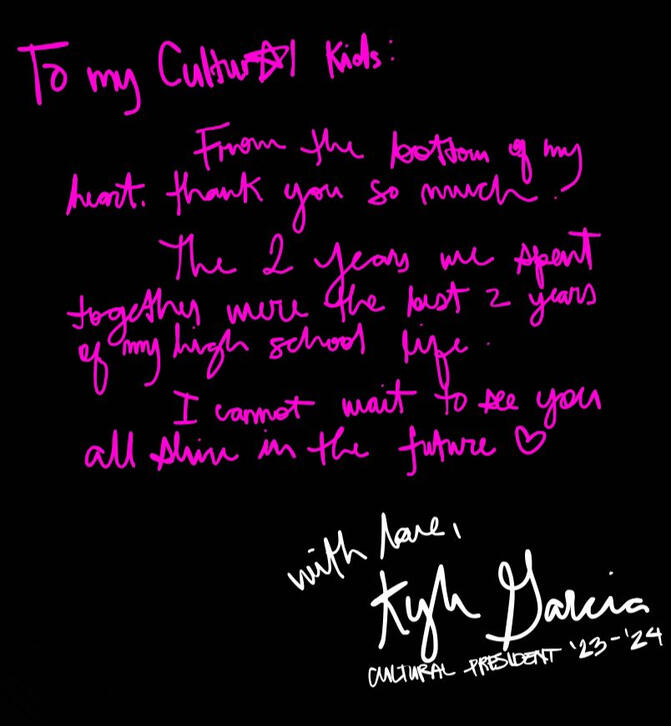 To my Cultural Kids:
From the bottom of my
heart, thank you so much!
The 2 years we spent
together were the best 2 years
of my high school life.
I cannot wait to see you
all shine in the future ♡
with love,
Kyle Garcia
CULTURAL PRESIDENT '23-'24